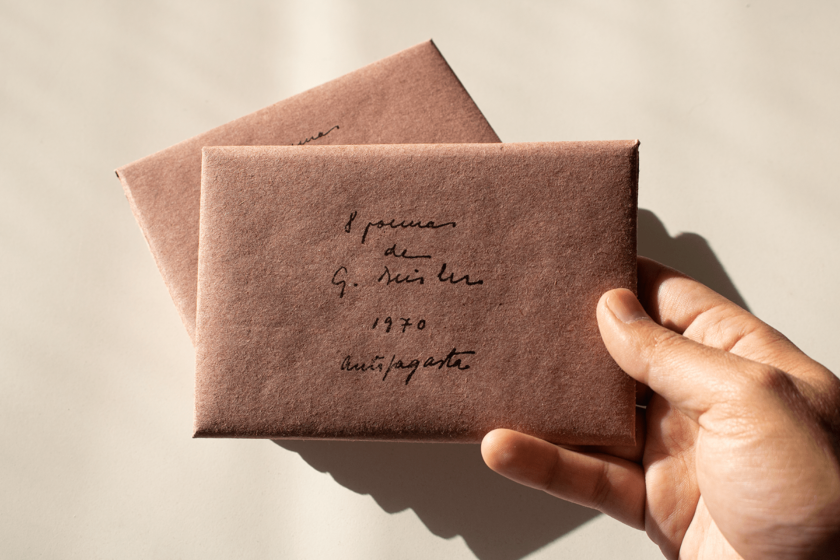 8 poemas
de
G. Deisler
1970
antofagasta